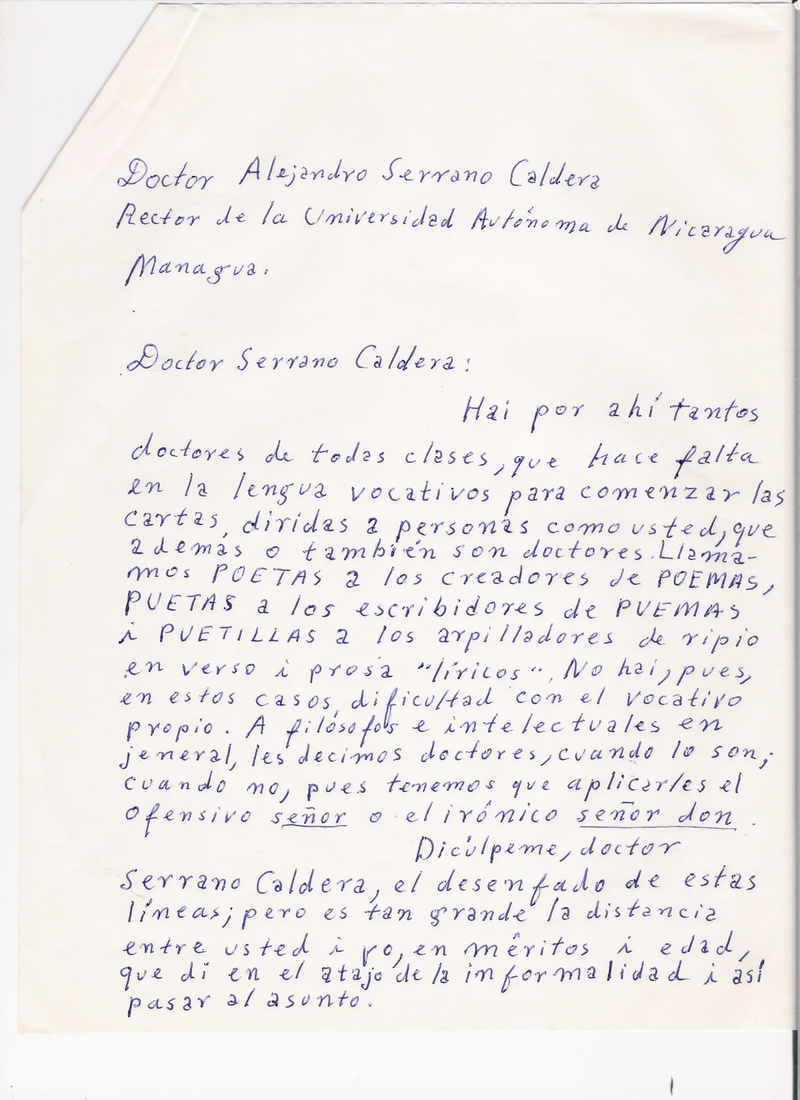 Doctor Alejandro Serrano Caldera
Rector de la Universidad Autónoma de Nicaragua
Managua.
Doctor Serrano Caldera:
Hai por ahí tantos
doctores de todas clases, que hace falta
en la lengua vocativos para comenzar las
cartas, diridas a personas como usted, que
además o también son doctores. Llama-
mos POETAS a los creadores de POEMAS,
PUETAS a los escribidores de PUEMAS
i PUETILLAS a los arpilladores de ripio
en verso i prosa "líricos". No hai, pues,
en estos casos, dificultad con el vocativo
propio. A filósofos e intelectuales en
jeneral, les decimos doctores, cuando lo son;
cuando no, pues tenemos que aplicarles el
ofensivo señor o el irónico señor don.
Dicúlpeme, doctor
Serrano Caldera, el desenfado de estas
líneas; pero es tan grande la distancia
entre usted i yo, en méritos i edad,
que di en el atajo de la informalidad i así
pasar al asunto.